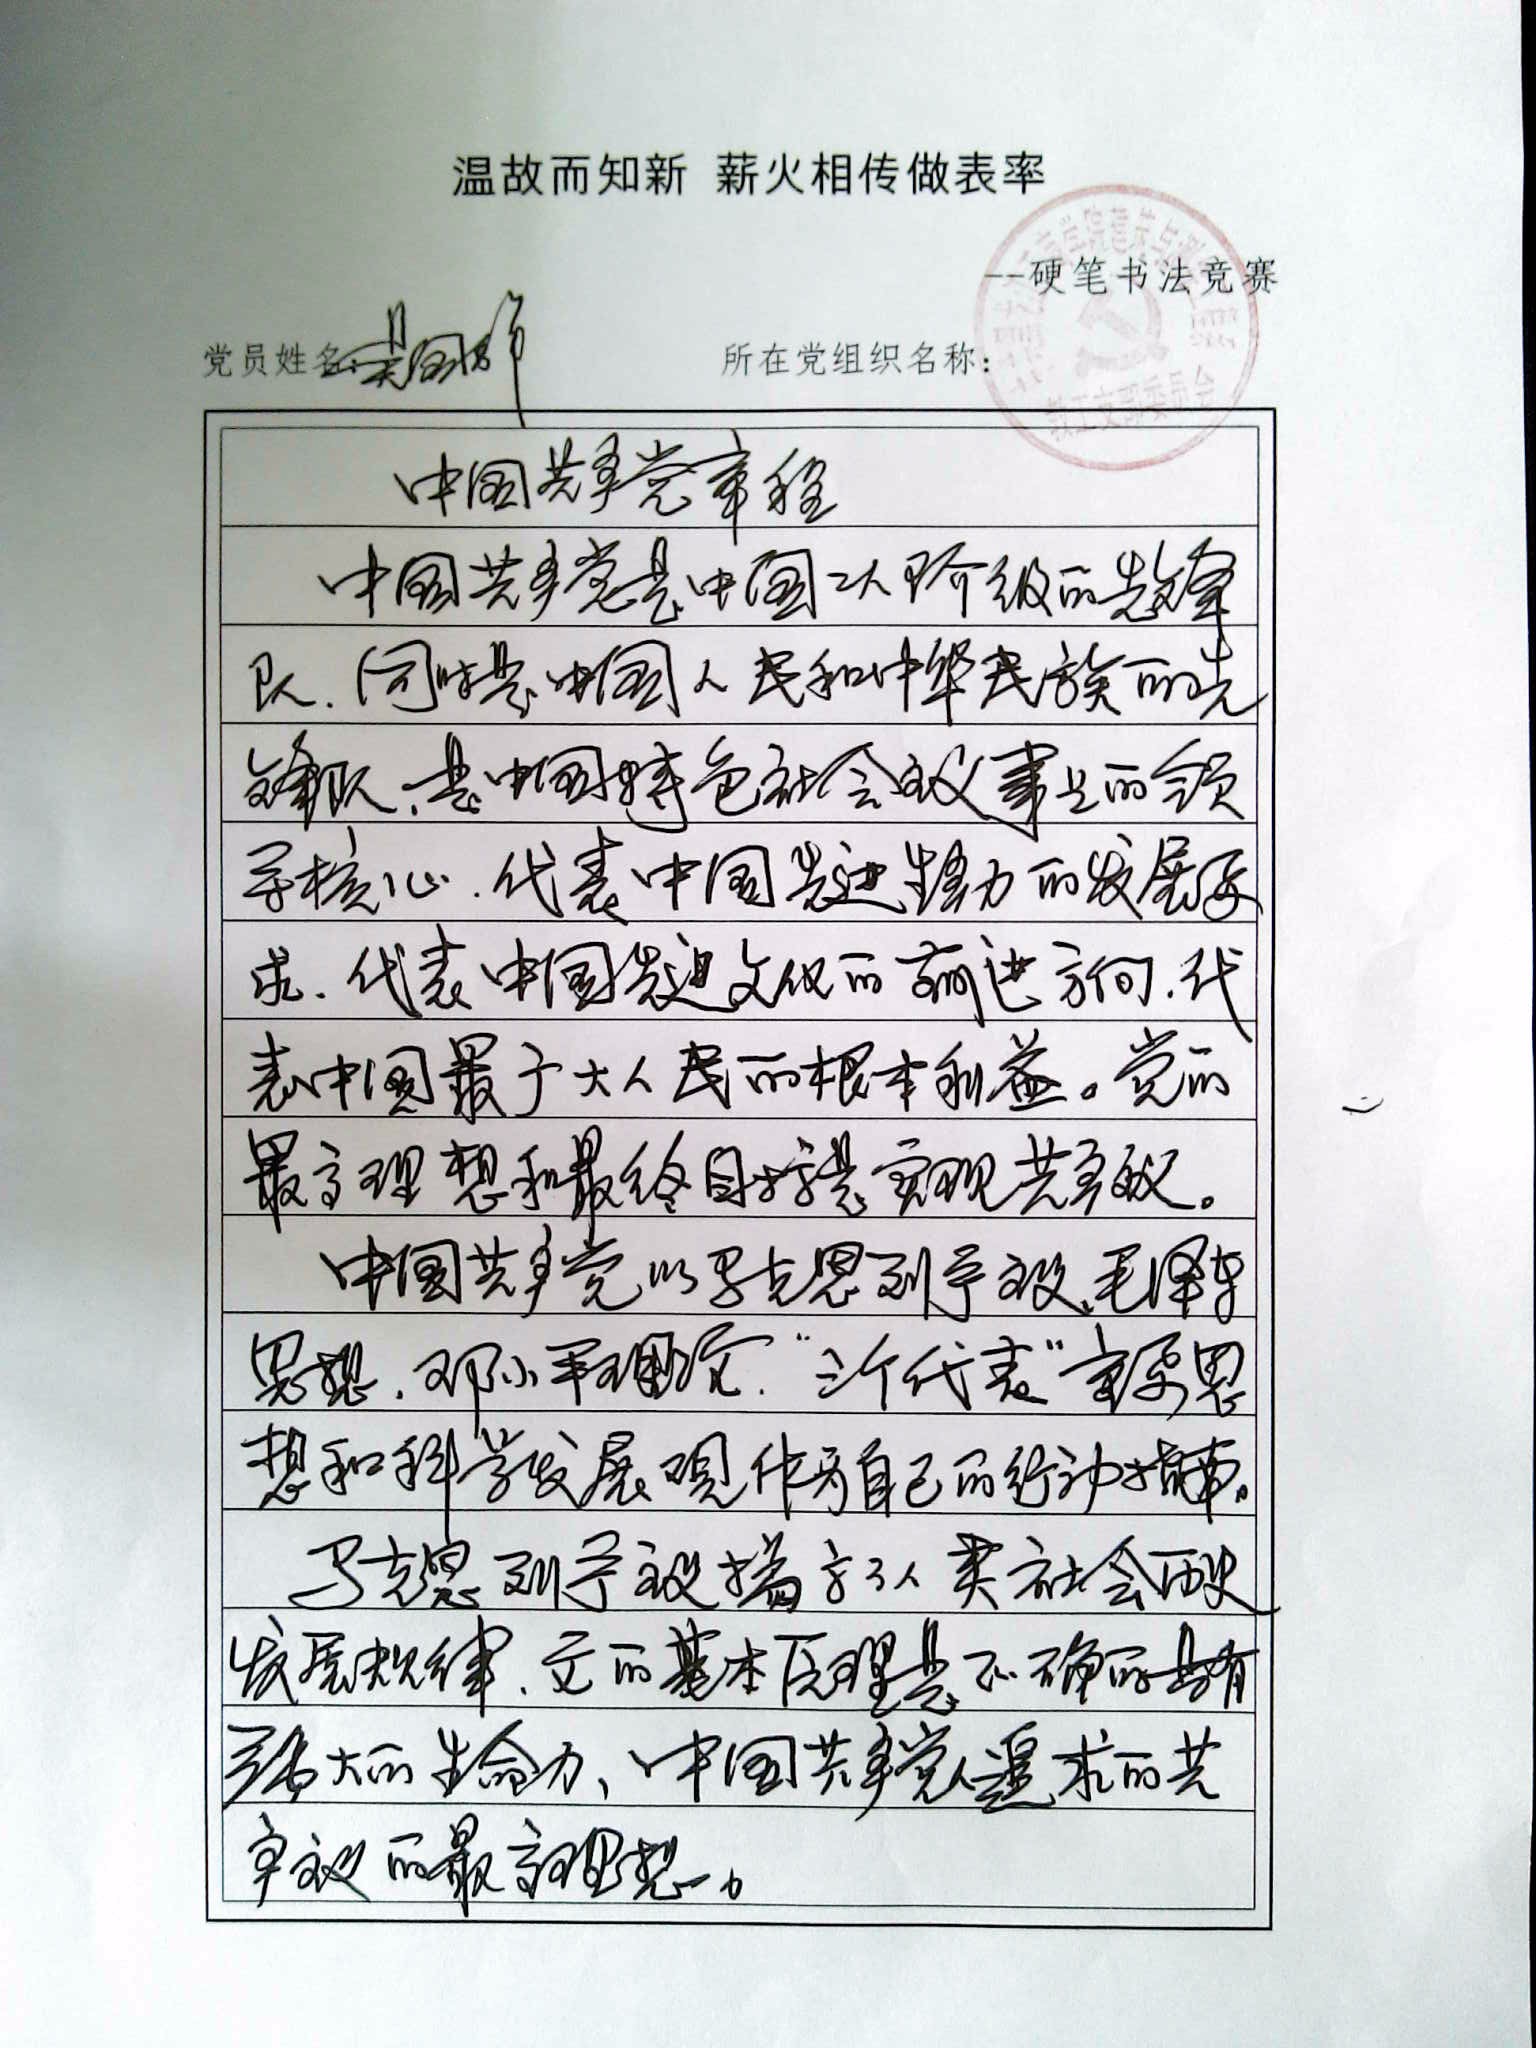 温故而知新 薪火相传做表率
--硬笔书法竞赛
党员姓名：
所在党组织名称：
教工支部委员会
中国共产党章程
中国共产党是中国工人阶级的先锋
队、同时是中国人民和中华民族的先
锋队、是中国特色社会主义事业的领
导核心、代表中国先进生产力的发展要
求、代表中国先进文化的前进方向、代
表中国最广大人民的根本利益。党的
最高理想和最终目标是实现共产主义。
中国共产党以马克思列宁主义、毛泽东
思想、邓小平理论、“三个代表”重要思
想和科学发展观作为自己的行动指南。
马克思列宁主义揭示了人类社会历史
发展规律、它的基本原理是正确的具有
强大的生命力、中国共产党人追求的共
产主义的最高理想。